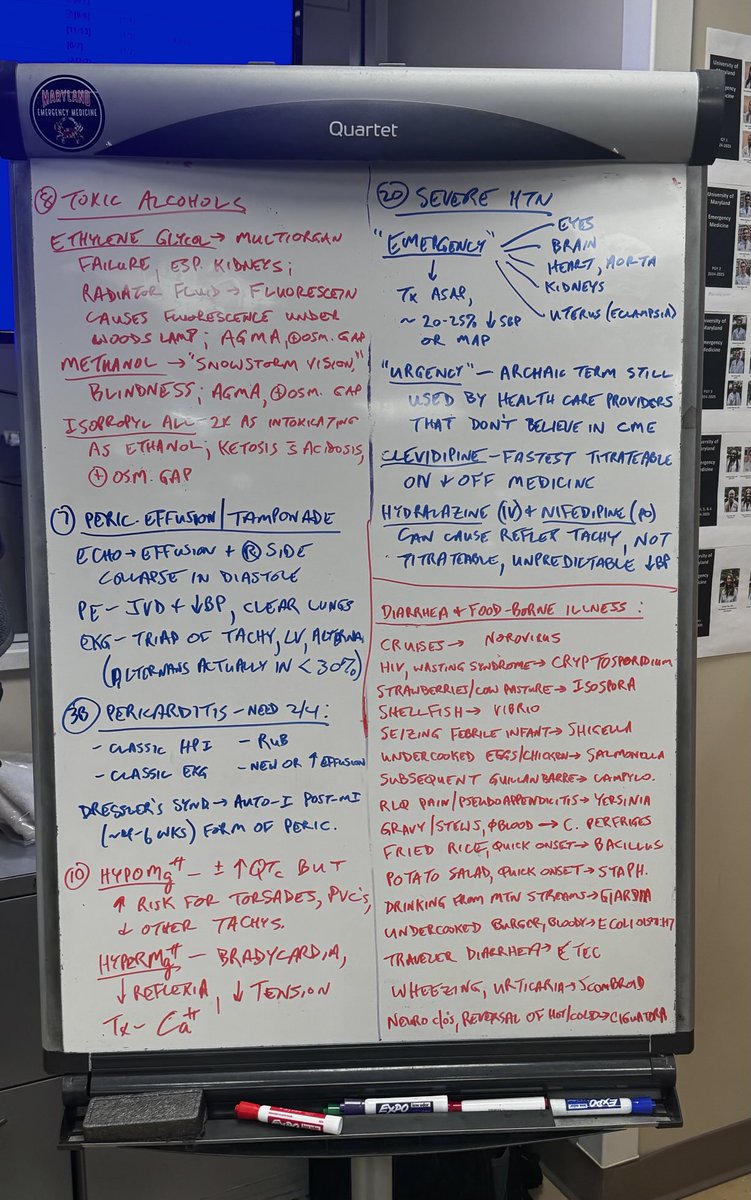 MARYLAND
EMERGENCY MEDICINE
Quartet
⑧ TOXIC ALCOHOLS
ETHYLENE GLYCOL → MULTIORGAN
FAILURE, ESP. KIDNEYS;
RADIATOR FLUID → FLUORESCEIN
CAUSES FLUORESCENCE UNDER
WOODS LAMP; AGMA, ⊕OSM. GAP
METHANOL → "SNOWSTORM VISION,"
BLINDNESS; AGMA, ⊕OSM. GAP
ISOPROPYL ALC - 2X AS INTOXICATING
AS ETHANOL; KETOSIS s̄ ACIDOSIS,
⊕ OSM. GAP
⑦ PERIC. EFFUSION/TAMPONADE
ECHO → EFFUSION + Ⓡ SIDE
COLLAPSE IN DIASTOLE
PE - JVD + ↓BP, CLEAR LUNGS
EKG - TRIAD OF TACHY, LV, ALTERNANS
(ALTERNANS ACTUALLY IN < 30%)
㊳ PERICARDITIS - NEED 2/4:
- CLASSIC HPI - RUB
- CLASSIC EKG - NEW OR ↑ EFFUSION
DRESSLER'S SYND → AUTO-I POST-MI
(~4-6 WKS) FORM OF PERIC.
⑩ HYPOMg⁺⁺ - ± ↑QTc BUT
↑ RISK FOR TORSADES, PVC'S,
& OTHER TACHYS.
HYPERMg⁺⁺ - BRADYCARDIA,
↓ REFLEXIA, ↓ TENSION
Tx - Ca⁺⁺
⑳ SEVERE HTN
"EMERGENCY"
EYES
BRAIN
HEART, AORTA
KIDNEYS
UTERUS (ECLAMPSIA)
↓
Tx ASAP,
~ 20-25% ↓ SBP
OR MAP
"URGENCY" - ARCHAIC TERM STILL
USED BY HEALTH CARE PROVIDERS
THAT DON'T BELIEVE IN CME
CLEVIDIPINE - FASTEST TITRATEABLE
ON & OFF MEDICINE
HYDRALAZINE (IV) + NIFEDIPINE (PO)
CAN CAUSE REFLEX TACHY, NOT
TITRATEABLE, UNPREDICTABLE ↓BP
DIARRHEA + FOOD-BORNE ILLNESS:
CRUISES → NOROVIRUS
HIV, WASTING SYNDROME → CRYPTOSPORDIUM
STRAWBERRIES/COW PASTURE → ISOSPORA
SHELLFISH → VIBRIO
SEIZING FEBRILE INFANT → SHIGELLA
UNDERCOOKED EGGS/CHICKEN → SALMONELLA
SUBSEQUENT GUILLAN BARRE → CAMPYLO.
RLQ PAIN/PSEUDOAPPENDICITIS → YERSINIA
GRAVY/STEWS, ØBLOOD → C. PERFRIGES
FRIED RICE, QUICK ONSET → BACILLUS
POTATO SALAD, QUICK ONSET → STAPH.
DRINKING FROM MTN STREAMS → GIARDIA
UNDERCOOKED BURGER, BLOODY → E COLI O157:H7
TRAVELER DIARRHEA → ETEC
WHEEZING, URTICARIA → SCOMBROID
NEURO c/o's, REVERSAL OF HOT/COLD → CIGUATERA
University of
Maryland
Emergency
Medicine
EXPO
EXPO
EXPO